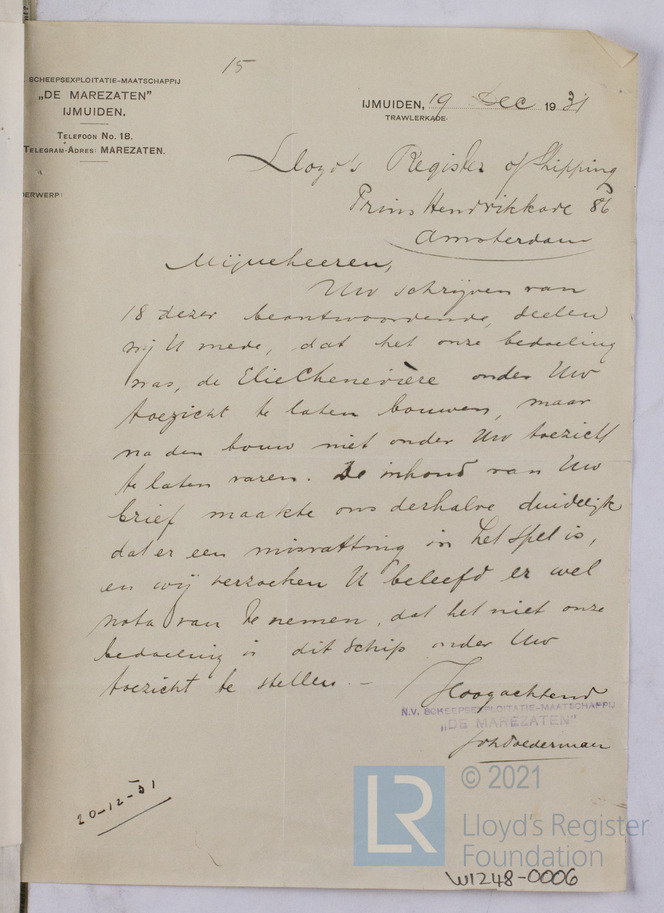 15
. SCHEEPSEXPLOITATIE-MAATSCHAPPIJ
„DE MAREZATEN”
IJMUIDEN.
TELEFOON No. 18.
TELEGRAM-ADRES: MAREZATEN.
DERWERP:
IJMUIDEN, 19 Dec 1931
TRAWLERKADE.
Lloyd's Register of Shipping
Prins Hendrikkade 86
Amsterdam
Mijneheeren,
Uw schrijven van
18 dezer beantwoordende, deelen
wij U mede, dat het onze bedoeling
was, de Elie Chenevière onder Uw
toezicht te laten bouwen, maar
na den bouw niet onder Uw toezicht
te laten varen. De inhoud van Uw
brief maakte ons derhalve duidelijk
dat er een misvatting in het spel is,
en wij verzoeken U beleefd er wel
nota van te nemen, dat het niet onze
bedoeling is dit schip onder Uw
toezicht te stellen. —
Hoogachtend
N.V. SCHEEPSEXPLOITATIE-MAATSCHAPPIJ
„DE MAREZATEN”
20-12-31
LR © 2021
Lloyd's Register
Foundation
W1248-0006